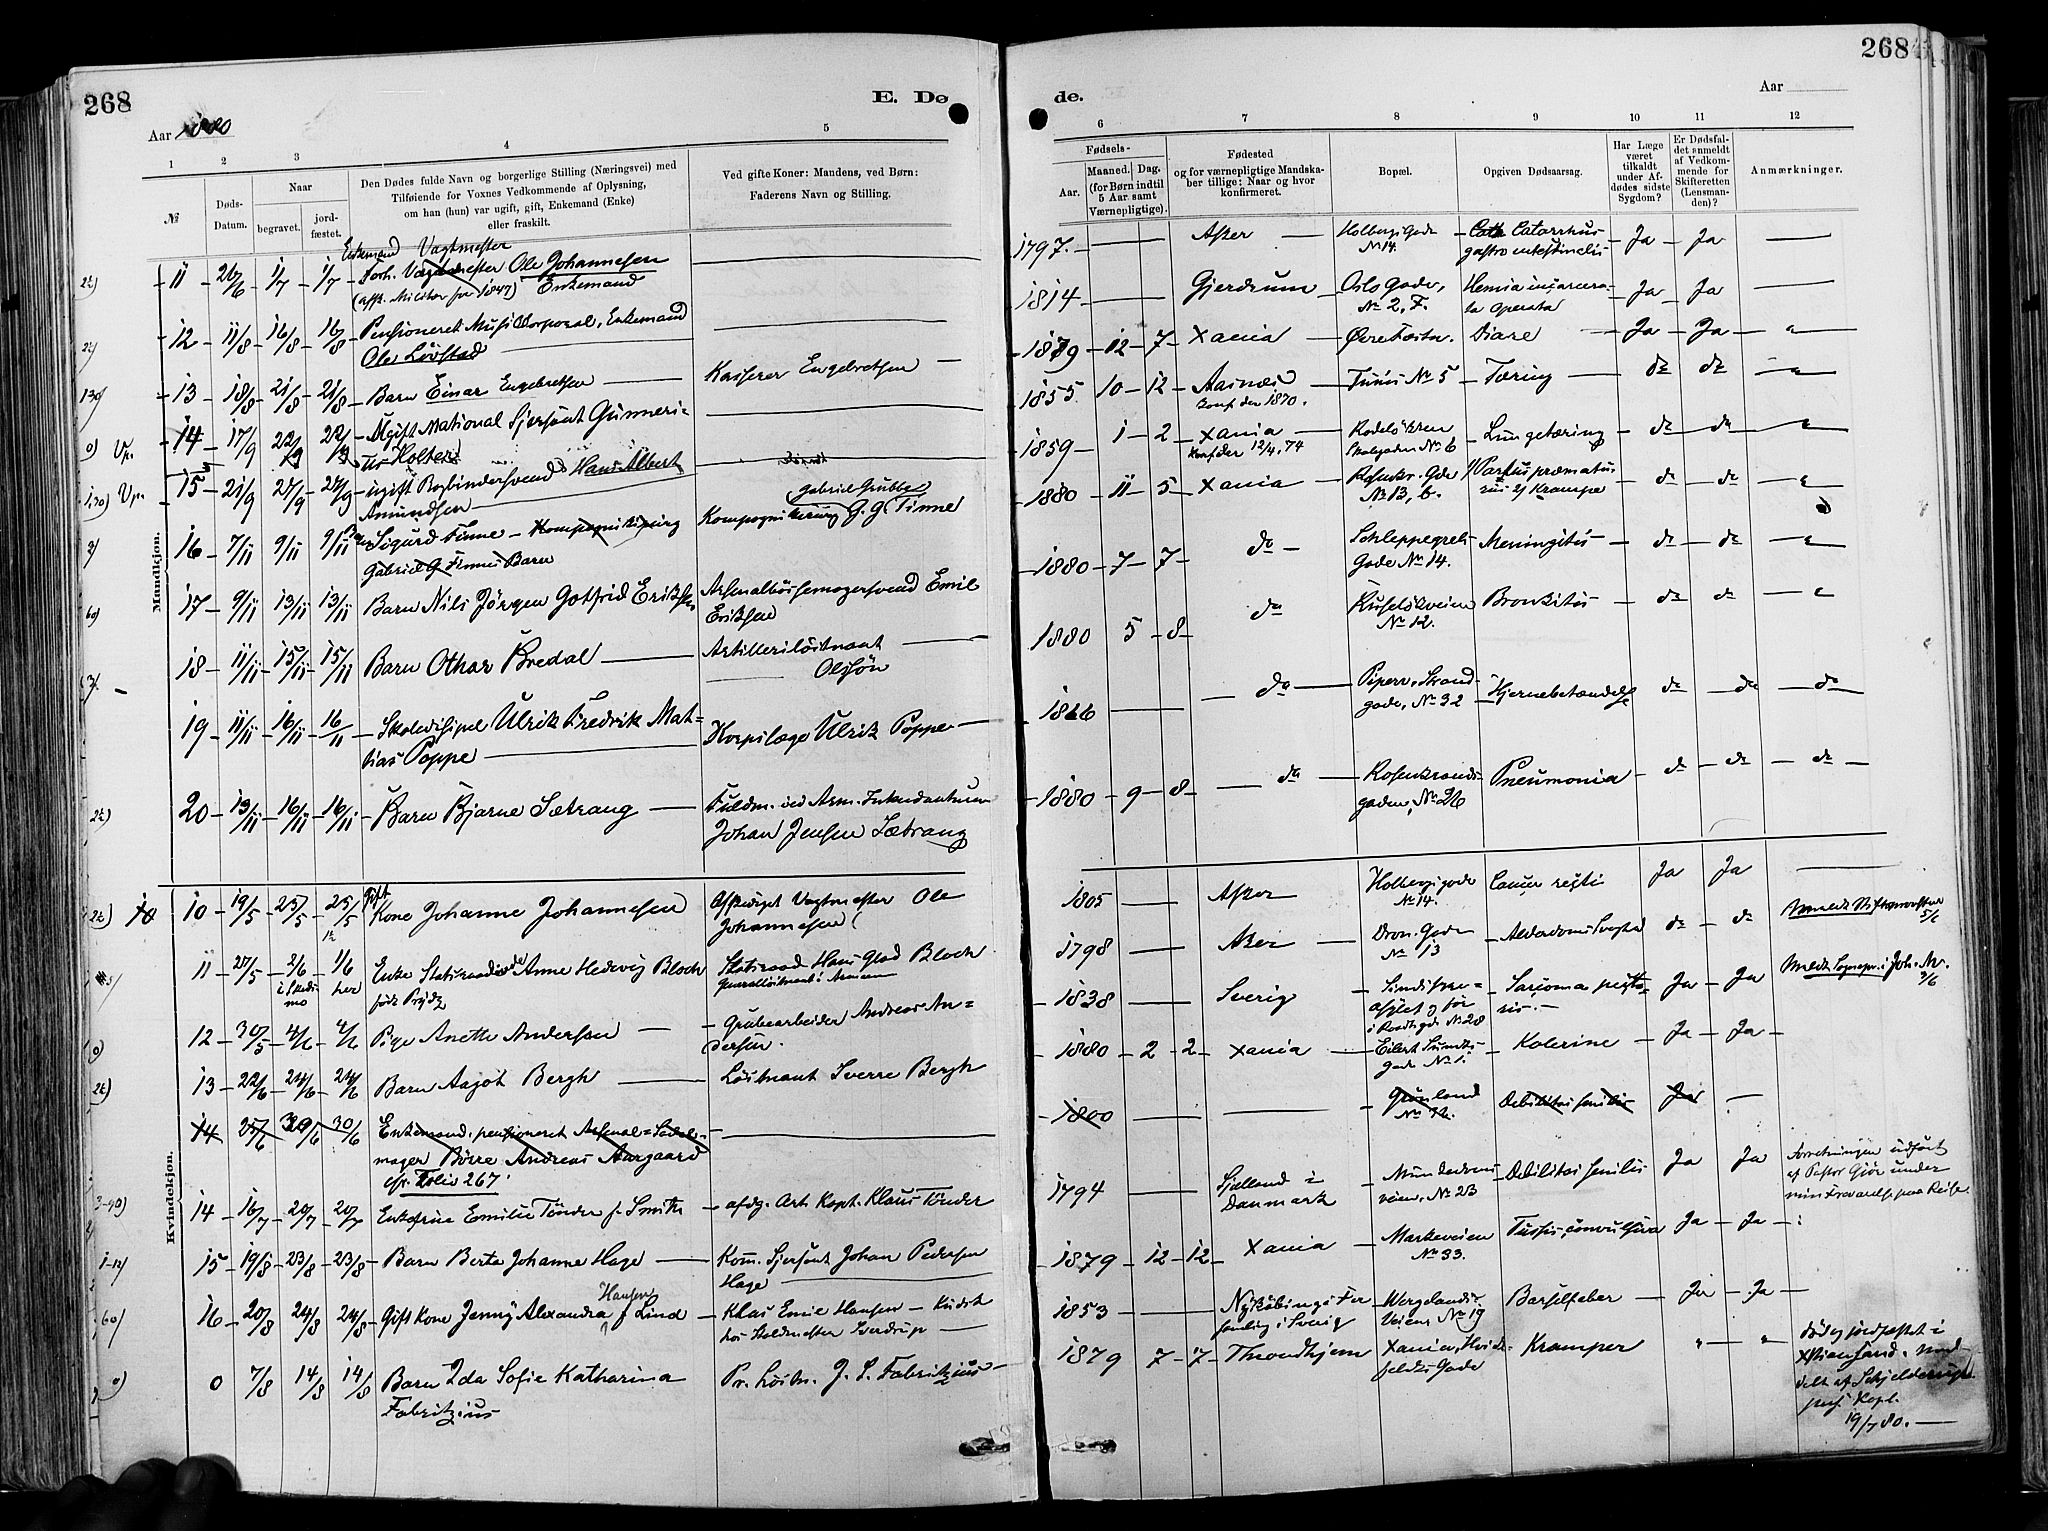 268
E. Dø
Aar 1880
1 2 3 4 5
№
Døds-
Datum.
Naar
begravet.
jord-
fæstet.
Den Dødes fulde Navn og borgerlige Stilling (Næringsvei) med
Tilføiende for Voxnes Vedkommende af Oplysning,
om han (hun) var ugift, gift, Enkemand (Enke)
eller fraskilt.
Ved gifte Koner: Mandens, ved Børn:
Faderens Navn og Stilling.
Mandkjøn.
Enkemand Vagtmester
11 26/6 1/7 1/7 Forh. Vagtmester Ole Johannesen
(afsk. Militær før 1847) Enkemand
12 11/8 16/8 16/8 Pensioneret Musikorporal, Enkemand
Ole Lövstad
13 18/8 21/8 21/8 Barn Einar Engebretsen Kasserer Engebretsen
Vp. 14 17/9 22/9 22/9 Ugift National Sjersant Gunneri-
us Holter
Vp. 15 21/9 27/9 27/9 ugift Bogbindersvend Hans Albert
Amundsen
Gabriel Grubbe
16 7/11 9/11 9/11 Barn Sigurd Finne – Kompagnikirurg Kompagnikirurg G. G Finne
Gabriel G Finnes Barn
17 9/11 13/11 13/11 Barn Nils Jörgen Gotfrid Eriksen Arsenalbössemagersvend Emil
Eriksen
18 11/11 15/11 15/11 Barn Othar Bredal Artillerilöitnant
Olssön
19 11/11 16/11 16/11 Skoledisipel Ulrik Fredrik Mat-
tias Poppe Korpslæge Ulrik Poppe
20 13/11 16/11 16/11 Barn Bjarne Sætrang Fuldm. ved Arm. Intendanturen
Johan Jensen Sætrang
Kvindekjøn.
10 19/5 25/5 25/5 Gift Kone Johanne Johannesen Afskediget Vagtmester Ole
Johannesen
11 27/5 2/6 1/6 Enke Statsraadinde Anne Hedevig Bloch Statsraad Hans Glad Bloch
her
født Prydz Generallöitnant i Armeen
12 30/5 4/6 4/6 Pige Anette Andersen Grubearbeider Andreas An=
dersen.
13 22/6 24/6 24/6 Barn Aagot Bergh Löitnant Sverre Bergh
14 25/6 30/6 30/6 Enkemand, pensioneret Arsenal=Sadel-
mager Börre Andreas Aargaard
cfr. Folio 267.
14 16/7 20/7 20/7 Enkefrue Emilie Tönder f. Smith afdg. Art. Kapt. Klaus Tönder
15 19/8 23/8 23/8 Barn Berta Johanne Hage Kom. Sjersant Johan Pedersen
Hage
Hansen
16 20/8 24/8 24/8 Gift Kone Jenny Alexandra f Lind Klas Emil Hansen – Kudsk
hos Staldmester Sverdrup
0 7/8 14/8 14/8 Barn Ida Sofie Katharina Pr. Löitn. J. S. Fabritzius
Fabritzius
268
de.
Aar
6 7 8 9 10 11 12
Fødsels-
Aar.
Maaned. Dag.
(for Børn indtil
5 Aar samt
Værnepligtige).
Fødested
og for værnepligtige Mandska-
ber tillige: Naar og hvor
konfirmeret.
Bopæl.
Opgiven Dødsaarsag.
Har Læge
været
tilkaldt
under Af-
dødes sidste
Sygdom?
Er Dødsfal-
det anmeldt
af Vedkom-
mende for
Skifteretten
(Lensman-
den)?
Anmærkninger.
1797. Asker Holbergs Gade Catarrhus Ja Ja
№ 14. gastro intestinalis
1814 Gjerdrum Oslo Gade, Hernia incarcera- Ja Ja
№ 2, F. ta operata
1879 12 7 Xania Øvre Fæstn. Diare Ja Ja "
1855 10 12 Aasnæs Tunis № 5 Tæring do do "
Konf. der 1870.
1859 1 2 Xania Rodeløkken Lungetæring do do "
Konf der 12/4, 74 Skolegaden № 6
1880 11 5 Xania Rosenkr. Gade 1/ Partus præmatu- do do "
№ 13, b. rus 2/ Krampe
1880 7 7 do Schleppegrels Meningitis do do "
Gade № 14.
1880 5 8 do Ruselökveien Bronkitis do do "
№ 12.
1866 do Piperv. Strand- Hjernebetændelse do do do
gade, № 32
1880 9 8 do Rosenkrands- Pneumonia do do do
gaden, № 26
1805 Asker Holbergs gade Cancer recti Ja Ja
№ 14.
1798 Aker Dron. Gade Alderdoms Svaghed do do
№ 13 5/6
1838 Sverig Ja Ja
3/6
1880 2 2 Xania Eilert Sundts- Kolerine Ja Ja
gade № 1.
1800 Grönland Debilitas senilis Ja
№ 32.
1794 Sjælland i Munkedams- Debilitas senilis Ja Ja Forretningen udført
Danmark veien, № 23 af Pastor Gjör under
min Fraværelse paa Reise.
1879 12 12 Xania Markveien Tussis convulsiva Ja Ja
№ 33.
1853 Nyköbing i Fær Wergelands- Barselfeber Ja Ja
samling i Sverig Veien, № 19
1879 7 7 Throndhjem Xania, Hvid- Kramper " " död og jordfæstet i
feldts Gade Xstiansand. med-
delt af Schjelderup
pers. Kapl.
19/ 80.